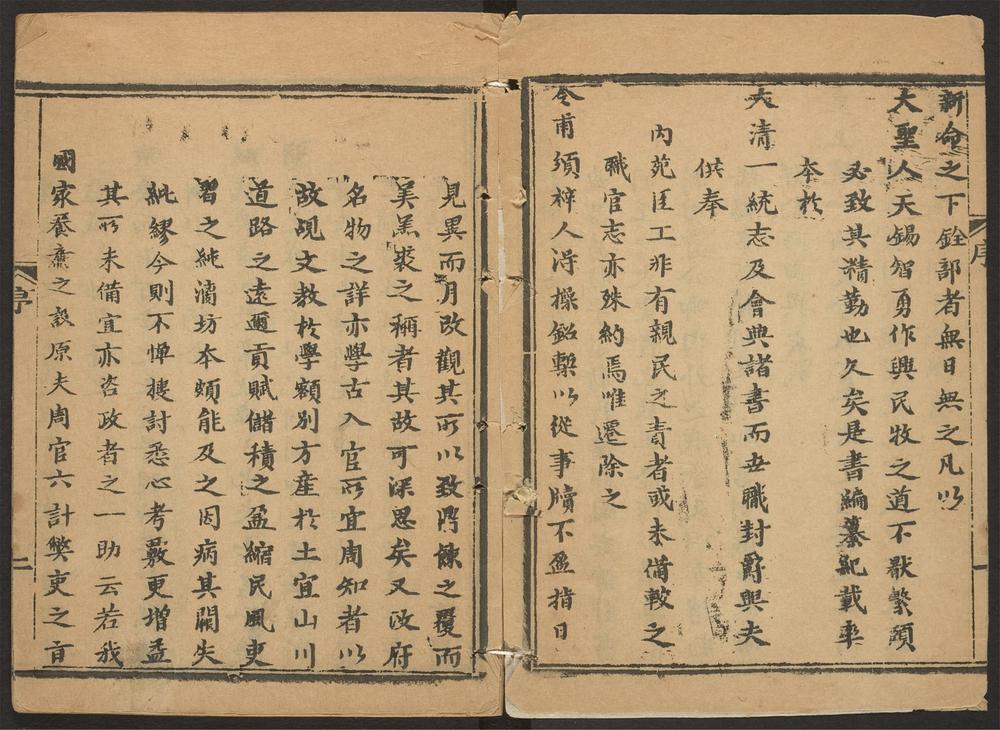 新命之下銓部者無日無之凡以
大聖人天錫智勇作興民牧之道不猒繁頻
必致其精勤也久矣是書編纂紀載率
本於
大清一統志及會典諸書而世職封爵與夫
供奉
內苑匠工非有親民之責者或未備較之
職官志亦殊約焉唯遷除之
令甫頒梓人淂操鉛槧以從事牘不盈指日
序
一
見異而月改觀其所以致鼎餗之覆而
美羔裘之稱者其故可深思矣又攷府
名物之詳亦學古入官所宜周知者以
故覘文教於學額別方產於土宜山川
道路之遠邇貢賦儲積之盈縮民風吏
習之純漓坊本頗能及之因病其闕失
紕繆今則不憚搜討悉心考覈更增益
其所未備宜亦咨政者之一助云若我
國家養廉之設原夫周官六計弊吏之旨
序
二